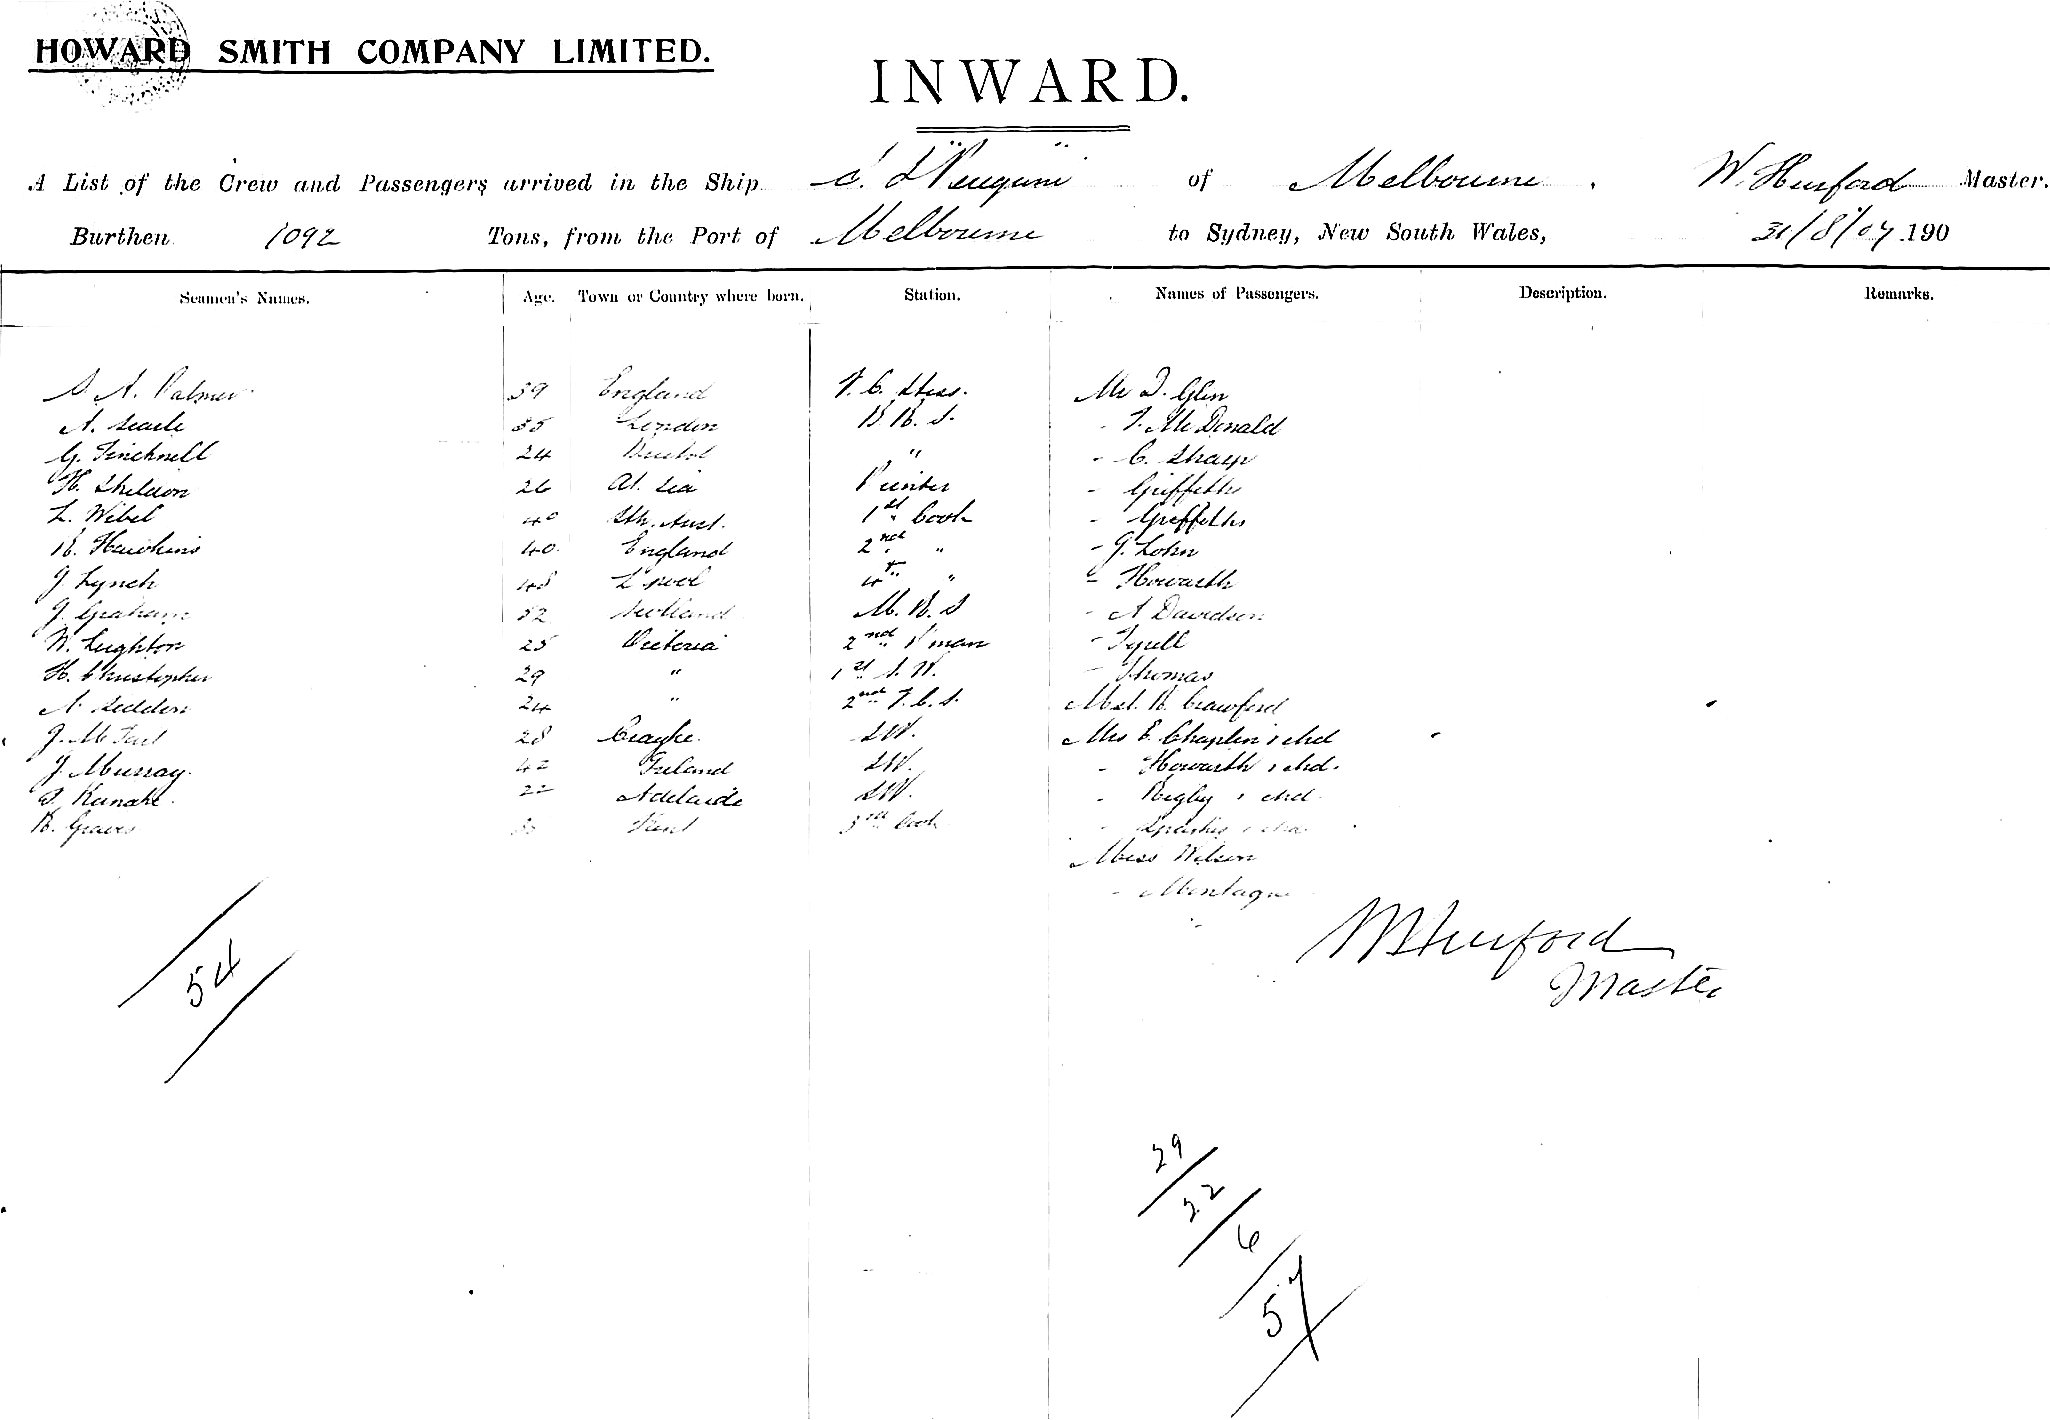 HOWARD SMITH COMPANY LIMITED.
INWARD.
A List of the Crew and Passengers arrived in the Ship S. S. "Penguin" of Melbourne, W. Hurford Master.
Burthen 1092 Tons, from the Port of Melbourne to Sydney, New South Wales, 31/8/07 190
Seamen's Names. Age. Town or Country where born. Station. Names of Passengers. Description. Remarks.
A. Palmer 39 England F. C. Stess. Mr D. Glen
A. Searle 35 London B. R. S. " J. McDonald
G. Tincknell 24 Bristol " " C. Sharp
H. Sheldon 26 At Sea Printer " Griffeths
L. Wibel 40 Sth. Aust. 1st Cook " Griffeths
R. Hawkins 40 England 2nd " " G. Lohn
J. Lynch 48 L'pool 4th " " Howarth
J. Graham 32 Scotland M. R. S " A Davidson
W. Leighton 25 Victoria 2nd P'man " Tyrell
H. Christopher 29 " 1st S. W. " Thomas
A. Seddon 24 " 2nd F. C. S. Mst. R. Crawford
J. 28 S.W. Mrs E. Chaplin & chd
J. Murray 42 Ireland S.W. " Howarth & chd.
22 Adelaide S.W. " Rigby & chd
R. Graves Kent 3rd Cook " & chd
Miss Wilson
" Montague
W Hurford
Master
54
29
22
6
57